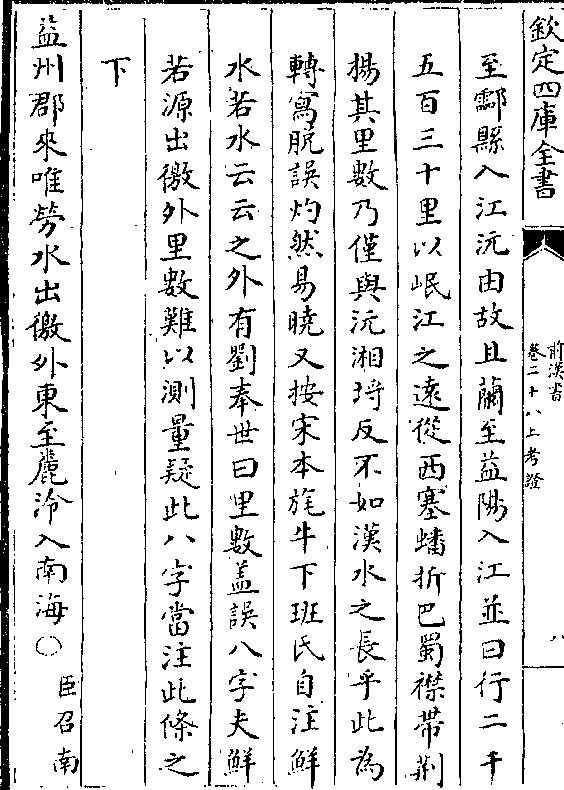 欽定四庫全書
前漢書
卷二十八上考證
八
至酃縣入江沅由故且蘭至益陽入江並曰行二千
五百三十里以岷江之遠從西塞蟠折巴蜀襟帶荆
揚其里數乃僅與沅湘埒反不如漢水之長乎此為
轉寫脫誤灼然易曉又按宋本旄牛下班氏自注鮮
水若水云云之外有劉奉世曰里數盖誤八字夫鮮
若源出徼外里數難以測量疑此八字當注此條之
下
益州郡來唯勞水出徼外東至麊泠入南海〇臣召南